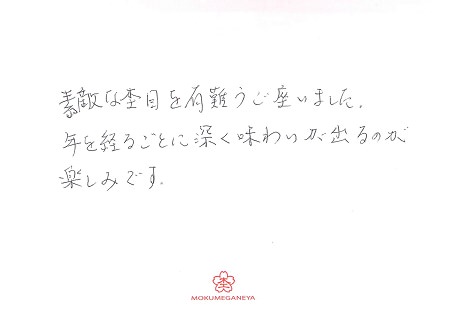 素敵な杢目を有難うご座いました。
年を経るごとに深く味わいが出るのが
楽しみです。
杢
MOKUMEGANEYA